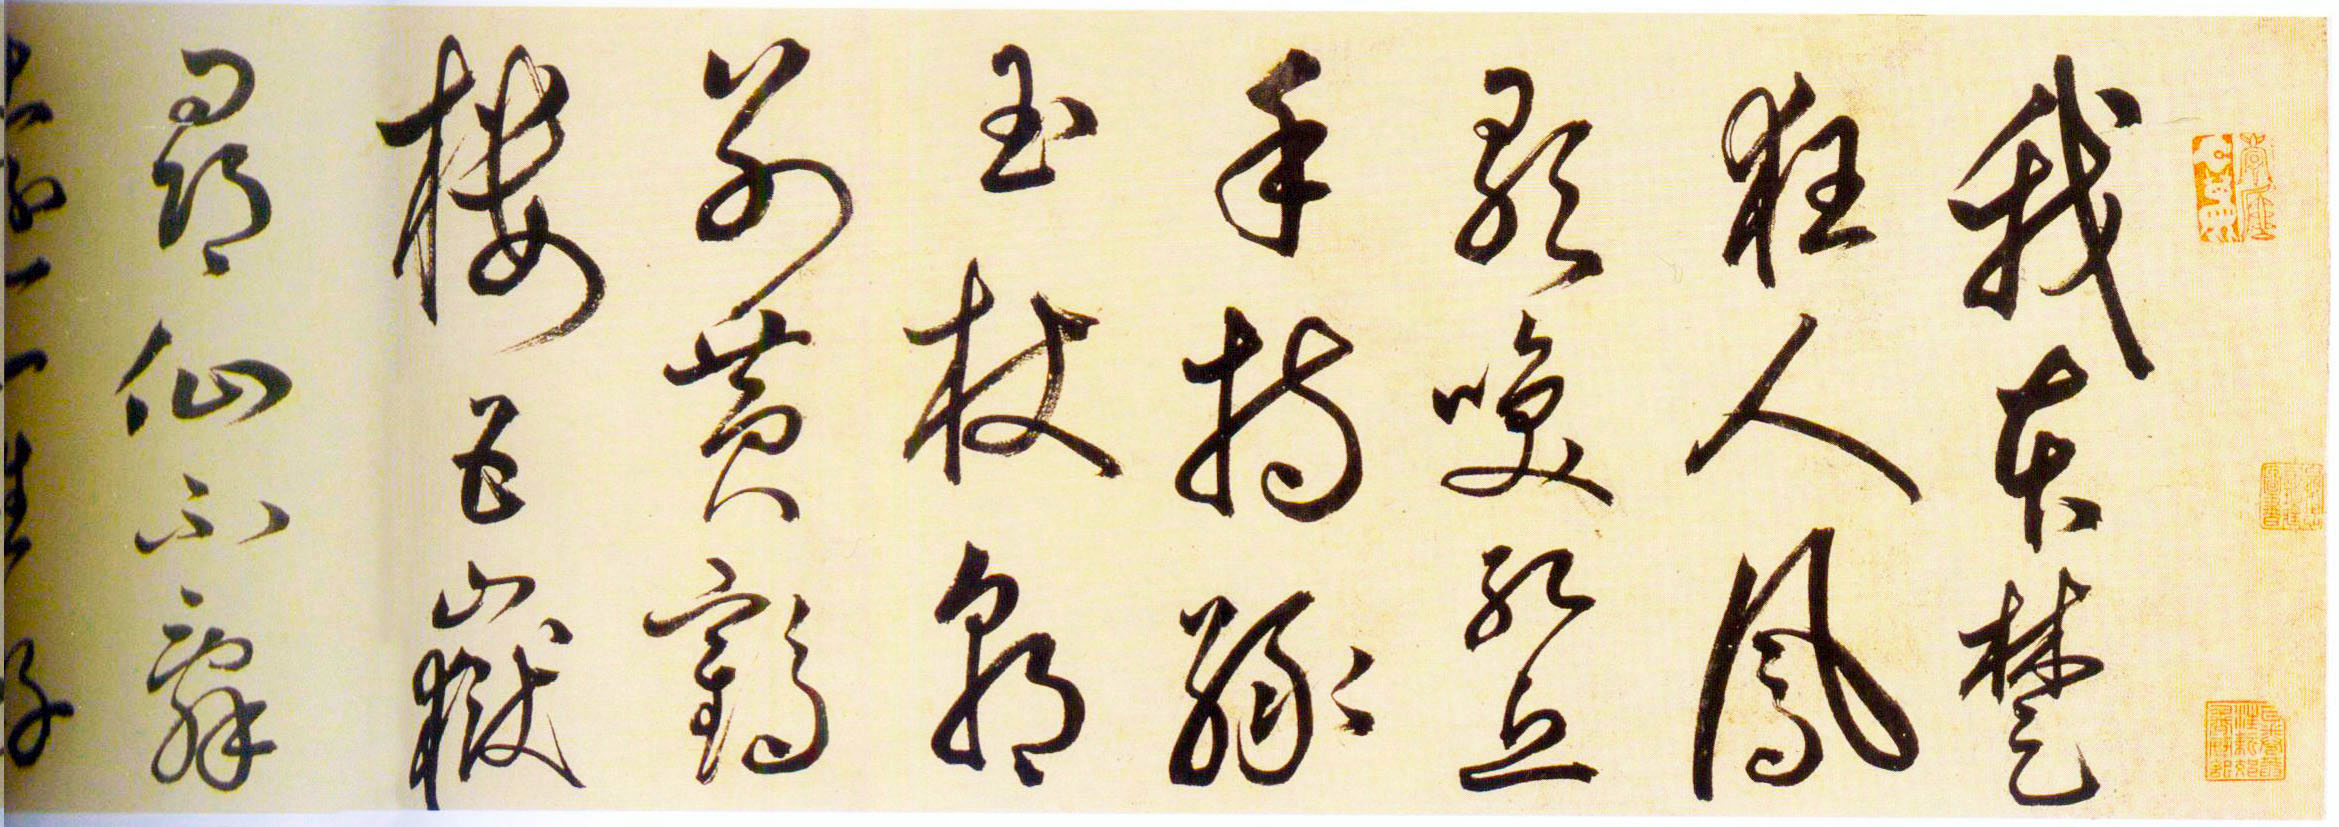 我本楚
狂人鳳
歌咲孔丘
手持綠
玉杖朝
別黃鶴
樓五嶽
尋仙不辭
一生好